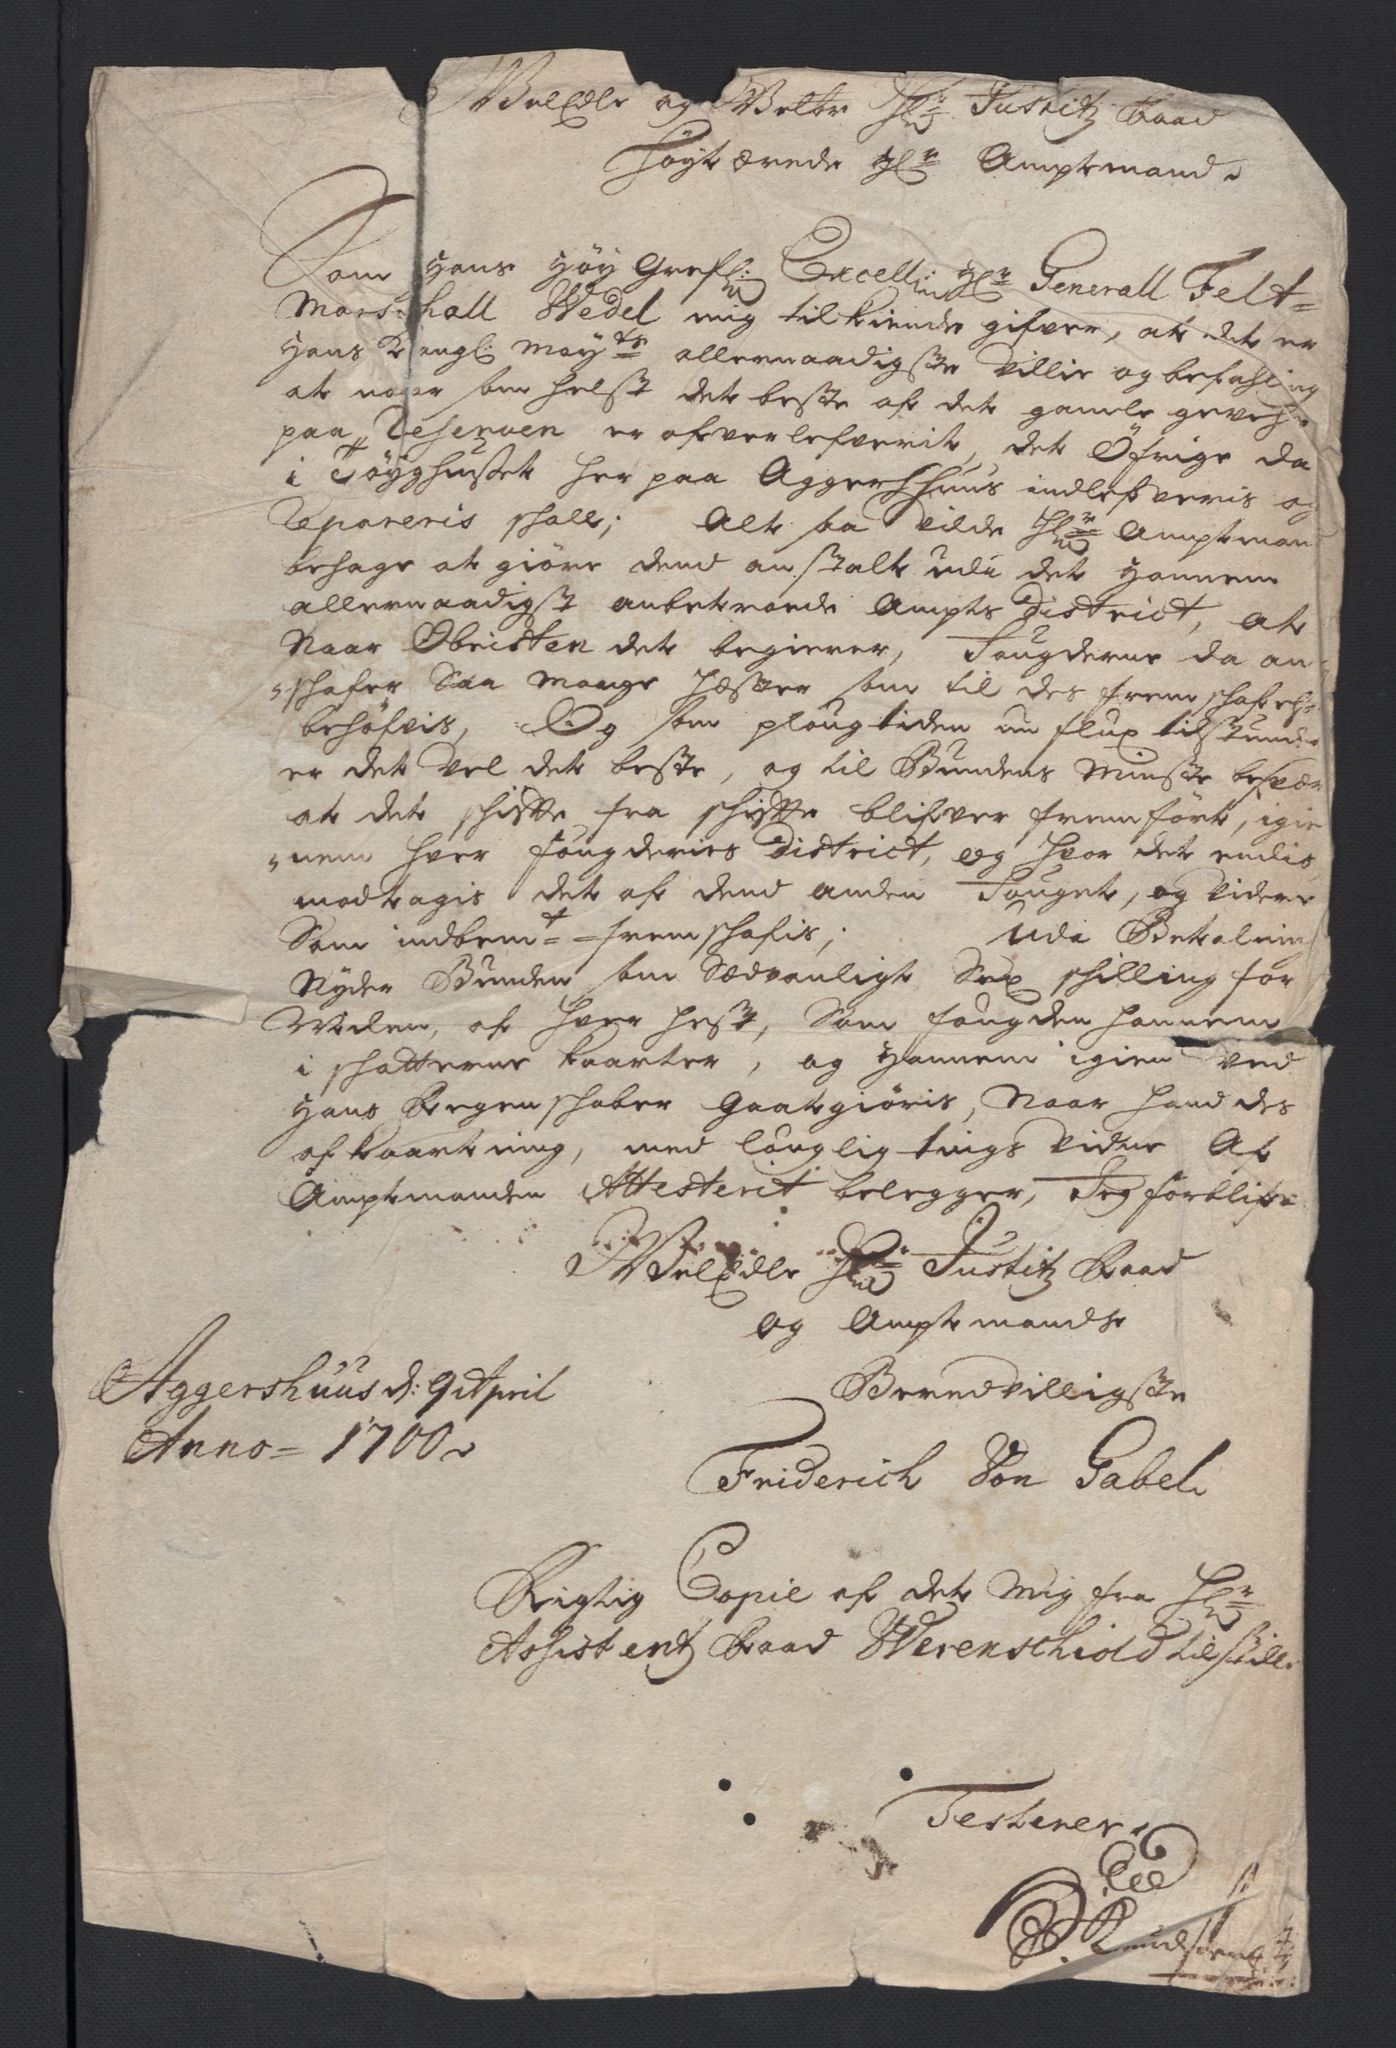 WelEdle og Velbr Hr Justitz Raad
Høyt ærede Hr Amptmand.
Som Hans Høy Grefl: Excell: Hr Generall Felt=
Marschall Wedel mig tilkiende gifver, at det er
Hans Kongl: Mayts allernaadigste Villie og befahling
at naar som helst det beste af det gamle geveh
paa Reserven er ofverlefverit, det Öfrige da
i Töyghuset her paa Aggershuus indlefveris og
Repareris schall; Alt saa vilde Hr Amptman
behage at giöre dend anstalt udi det Hannem
allernaadigst anbetroede Ampts District, at
Naar Obristen det begierer, Fougderne da an
=schafer Saa Mange Hester som til des fremschafels
behöfvis, Og som plougtiden nu flux tilstunder
er det vel det beste, og til Bundens Minste besvær
at det schifte fra schifte blifver fremfört, igie
=nem hver fougderies District, og hvor det endis
modtagis det af dend anden Fouget, og videre
Som indbemt fremschafis; Udi Betaling
Nyder Bunden som Sædvanligt Sex schilling for
Milen, af hver hest, Som fougden hannem
i schatterne kaarter, og Hannem igien ved
Hans Regenschaber Gaatgiöris, Naar hand des
afkaartning, med louglig tings vidne Af
Amptmanden Attesterit belegger, Jeg forblifr
WelEdle Hr Justitz Raad
og Amptmands
Beredvilligste
Aggershuus d: 9 April
Anno= 1700.
Friderich Von Gabel.
Rigtig Copie af det Mig fra Hr
Assistentz Raad Werenschiold tilstill.
Testerer.
Knudsen